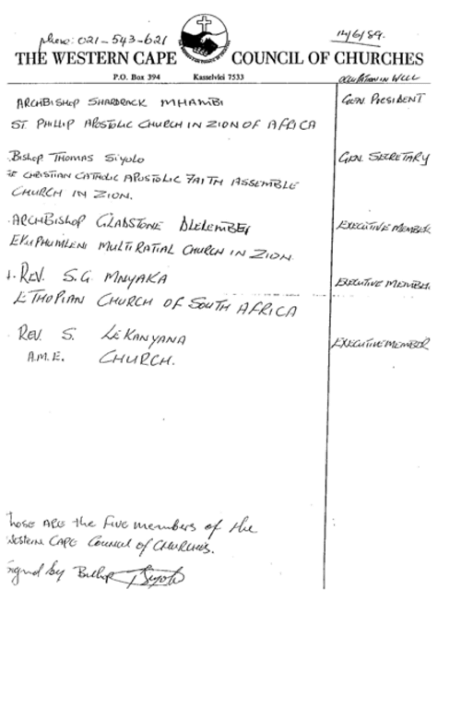 phone: 021-543-621
14/6/89.
THE WESTERN CAPE COUNCIL OF CHURCHES
P.O. Box 394 Kasselvlei 7533
OCCUPATION IN WCCC
ARCHBISHOP SHARDRACK MHAMBI GEN. PRESIDENT
ST PHILLIP APOSTOLIC CHURCH IN ZION OF AFRICA
BISHOP THOMAS SIYOLO GEN. SECRETARY
CHRISTIAN CATHOLIC APOSTOLIC FAITH ASSEMBLE
CHURCH IN ZION.
ARCHBISHOP GLADSTONE EXECUTIVE MEMBER
EKUPHUMLENI MULTIRATIAL CHURCH IN ZION
REV. S.G. MNYAKA EXECUTIVE MEMBER
ETHOPIAN CHURCH OF SOUTH AFRICA
REV. S. LEKANYANA EXECUTIVE MEMBER
A.M.E. CHURCH.
hose ARE the FIVE members of the
Western CAPE Council of CHURCHES.
igned by Bishop